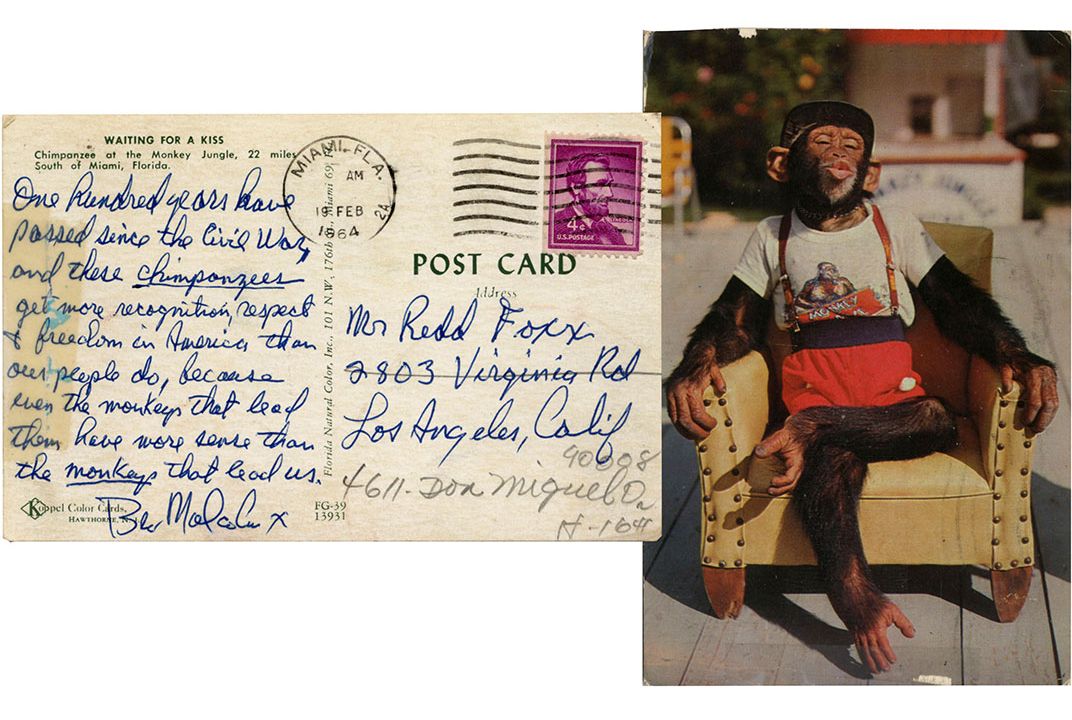 WAITING FOR A KISS
Chimpanzee at the Monkey Jungle, 22 miles
South of Miami, Florida.
One hundred years have
passed since the Civil War,
and these chimpanzees
get more recognition, respect
& freedom in America than
our people do, because
even the monkeys that lead
them, have more sense than
the monkeys that lead us.
Bro Malcolm X
Koppel Color Cards,
HAWTHORNE, N. J.
FG-39
13931
Florida Natural Color, Inc., 101 N.W. 176th Miami 69,
MIAMI, FLA.
AM
19 FEB
1964
2A
LINCOLN
4¢
U.S. POSTAGE
POST CARD
Address
Mr Redd Foxx
2803 Virginia Rd
Los Angeles, Calif
90008
4611 - Don Miguel Dr
MONKEY